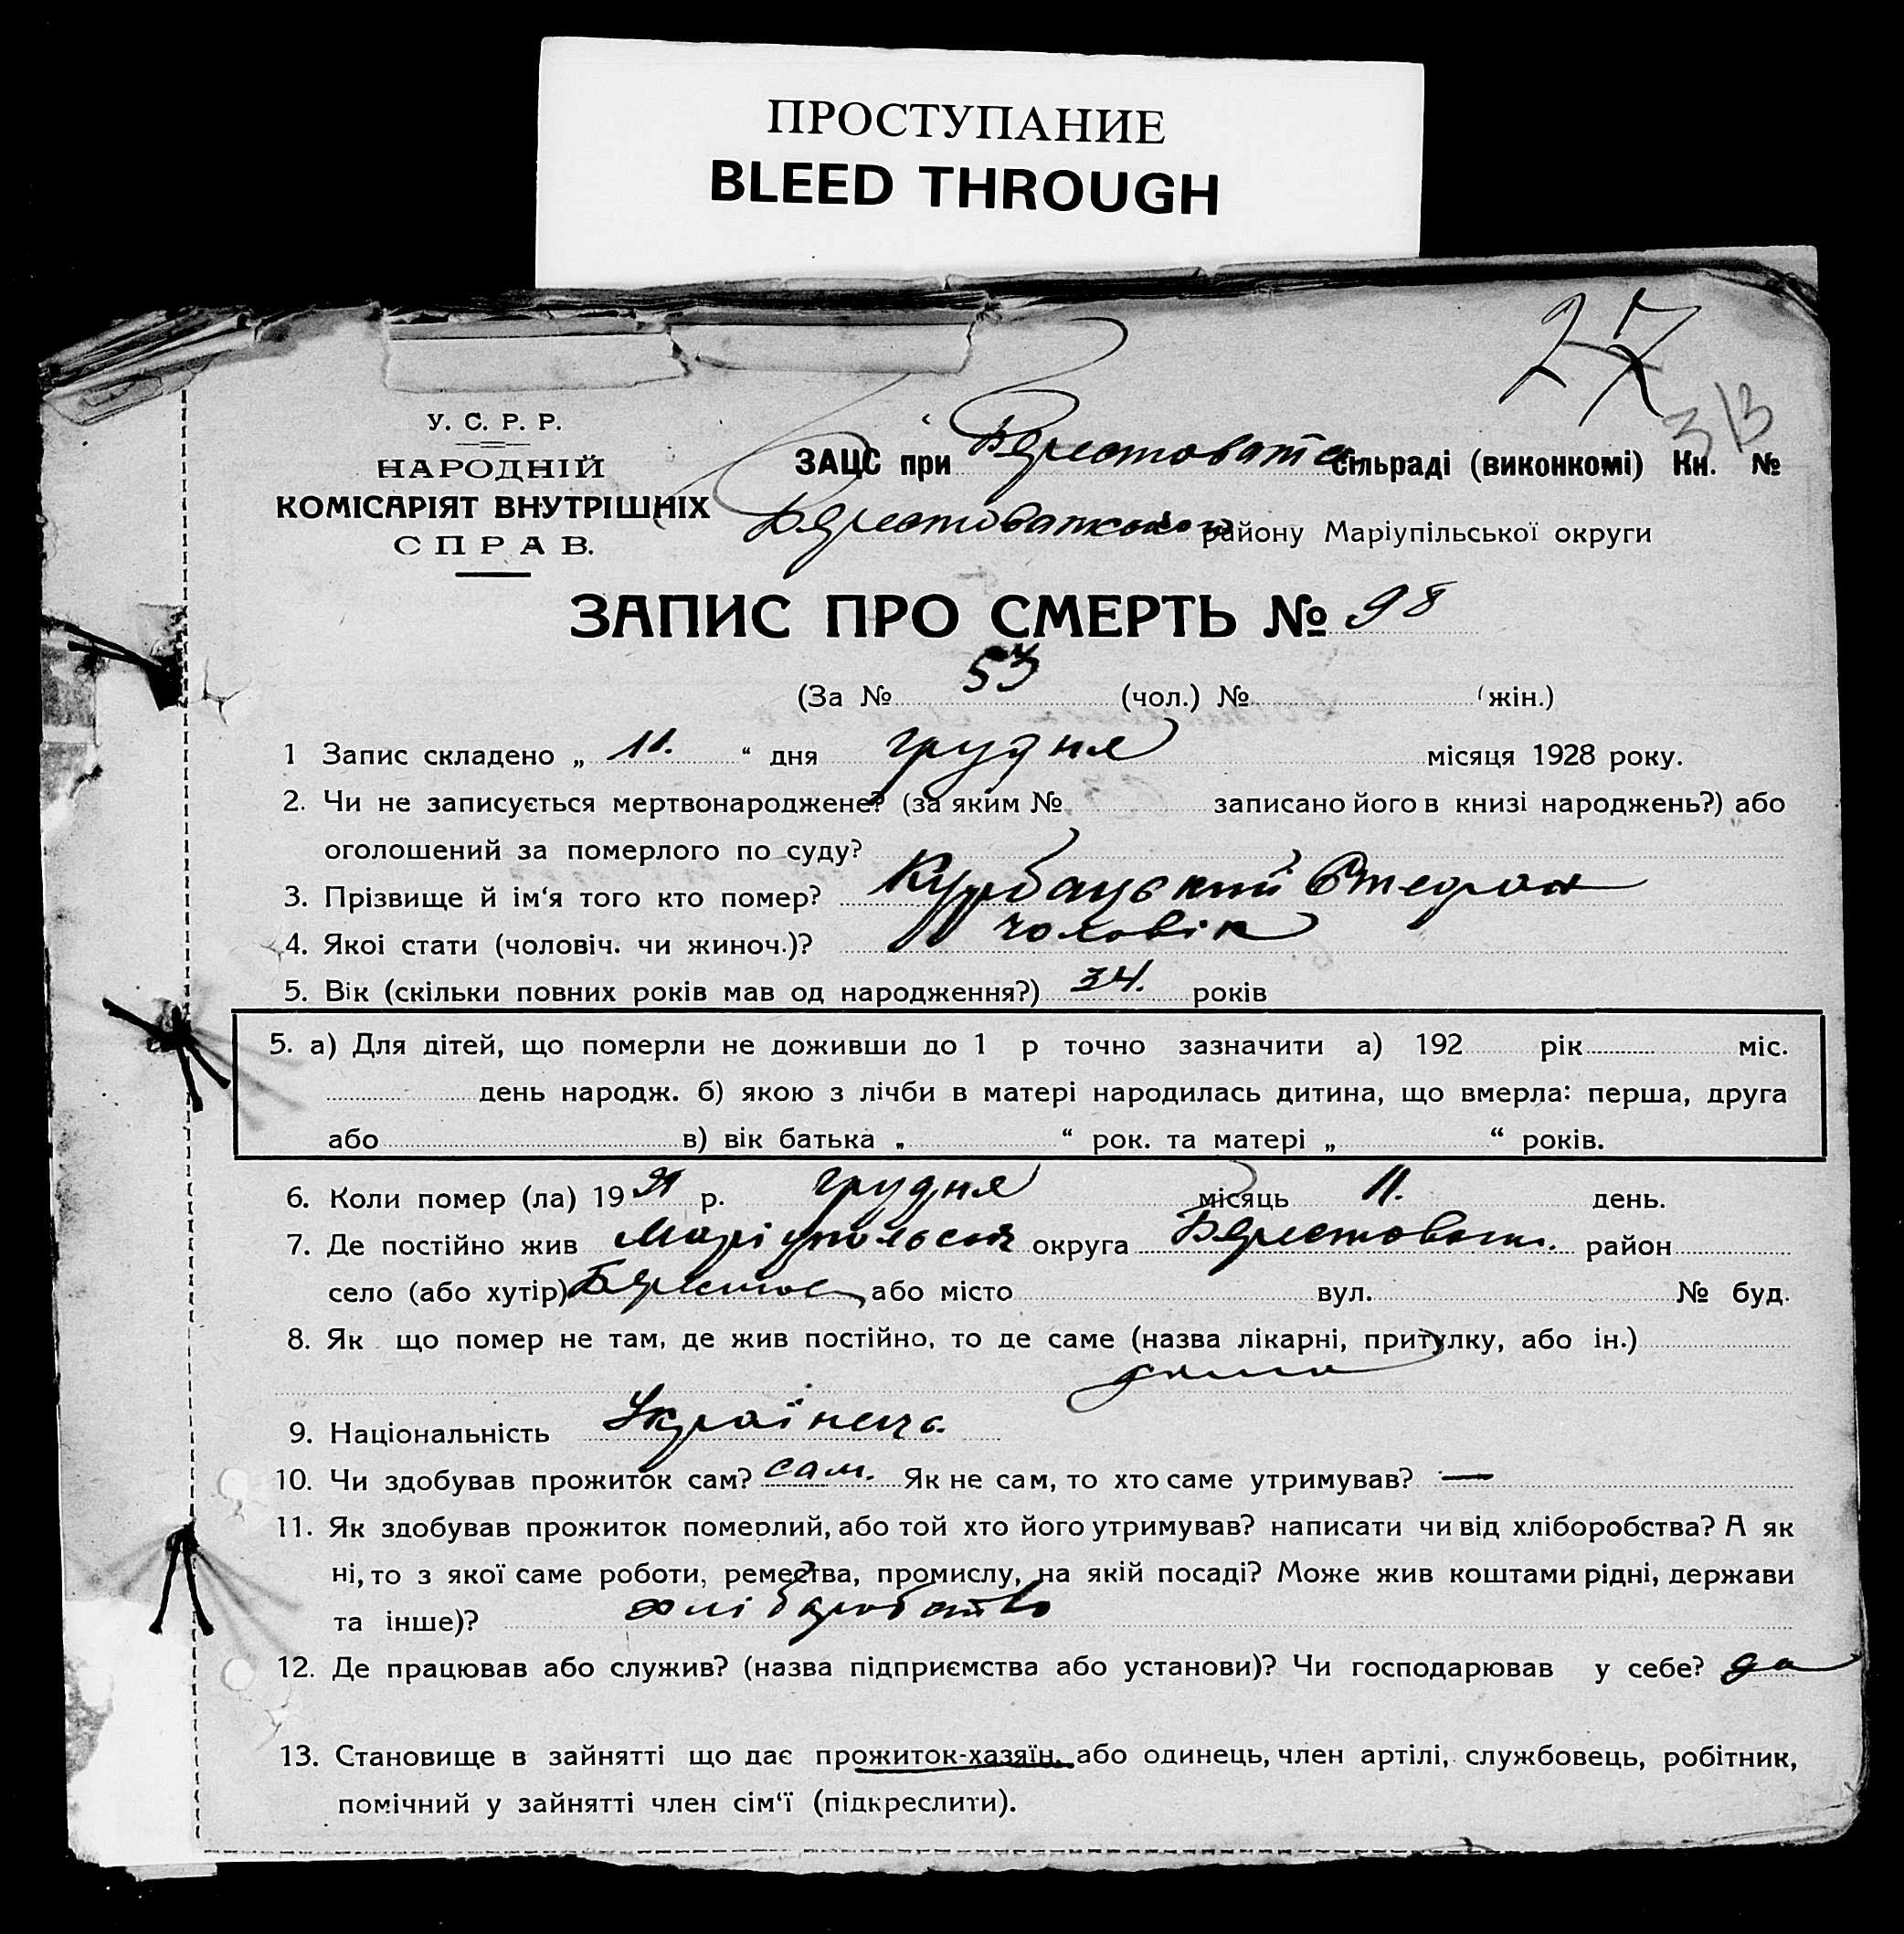 ПРОСТУПАНИЕ
BLEED THROUGH
27
313
У. С. Р. Р.
НАРОДНІЙ
КОМІСАРІЯТ ВНУТРІШНІХ
СПРАВ.
ЗАЦС при Берестоватс. сільраді (виконкомі) Кн. №
Берестоватського району Маріупільської округи
ЗАПИС ПРО СМЕРТЬ № 98
(За № 53 (чол.) № (жін.)
1 Запис складено „ 11. “ дня грудня місяця 1928 року.
2. Чи не записується мертвонароджене? (за яким № записано його в книзі народжень?) або
оголошений за померлого по суду?
3. Прізвище й ім‘я того кто помер? Курбацький Стефан
4. Якоі стати (чоловіч. чи жиноч.)? чоловік
5. Вік (скільки повних років мав од народження?) 34. років
5. а) Для дітей, що померли не доживши до 1 р точно зазначити а) 192 рік міс.
день народж. б) якою з лічби в матері народилась дитина, що вмерла: перша, друга
або в) вік батька „ “ рок. та матері „ “ років.
6. Коли помер (ла) 19 р. грудня місяць 11. день.
7. Де постійно жив Маріупольська округа Берестоватс. район
село (або хутір) Берестов або місто вул. № буд.
8. Як що помер не там, де жив постійно, то де саме (назва лікарні, притулку, або ін.)
дома
9. Національність Українець.
10. Чи здобував прожиток сам? сам. Як не сам, то хто саме утримував? —
11. Як здобував прожиток померлий, або той хто його утримував? написати чи від хліборобства? А як
ні, то з якої саме роботи, ремества, промислу, на якій посаді? Може жив коштами рідні, держави
та інше)? хліборобство
12. Де працював або служив? (назва підприємства або установи)? Чи господарював у себе? да
13. Становище в зайнятті що дає прожиток-хазяїн, або одинець, член артілі, службовець, робітник,
помічний у зайнятті член сім‘ї (підкреслити).